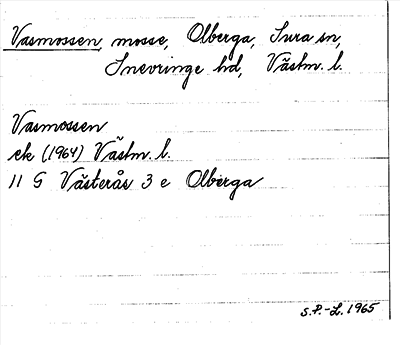 Vasmossen, mosse, Olberga, Sura sn,
Snevringe hd, Västm. l.
Vasmossen
ek (1964) Västm. l.
11 G Västerås 3 e Olberga
S.P.-L. 1965